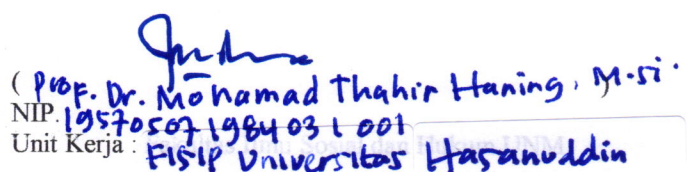 ( Prof. Dr. Mohamad Thahir Haning, M.si.
NIP. 19570507 198403 1 001
Unit Kerja : FISIP Universitas Hasanuddin
Sosial dan Hukum UNM